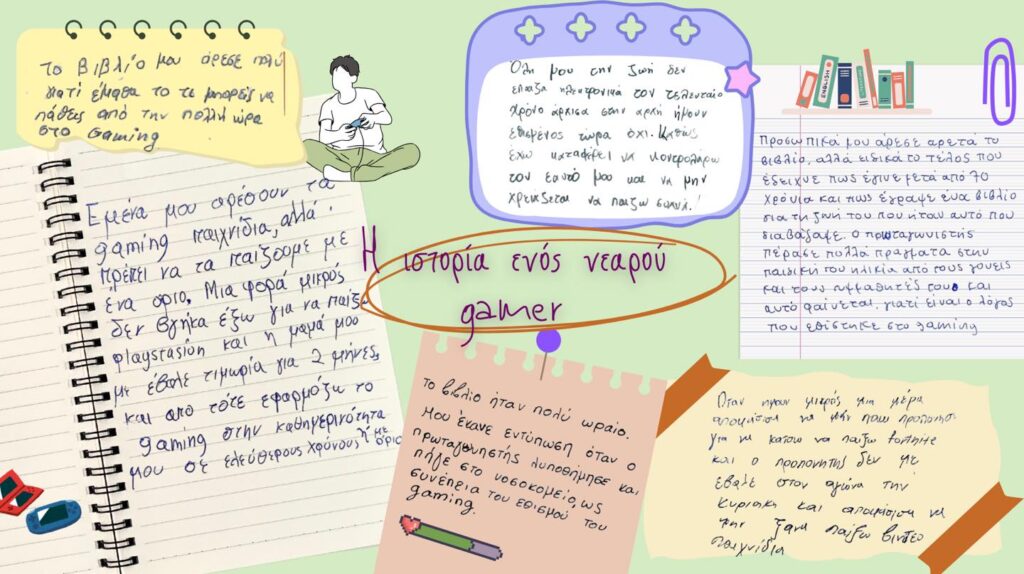 Το βιβλίο μου άρεσε πολύ
γιατί έμαθα το τι μπορείς να
πάθεις από την πολλή ώρα
στο Gaming
Όλη μου την ζωή δεν
έπαιξα ηλεκτρονικά τον τελευταίο
χρόνο άρχισα στην αρχή ήμουν
εθισμένος τώρα όχι. Καθώς
έχω καταφέρει να κοντρολάρω
τον εαυτό μου και να μην
χρειάζεται να παίξω
ENGLISH
Προσωπικά μου άρεσε αρετά το
βιβλίο, αλλά ειδικά το τέλος που
έδειχνε πως έγινε μετά από 70
χρόνια και πως έγραψε ένα βιβλίο
για τη ζωή του που ήταν αυτό που
διαβάσαμε. Ο πρωταγωνιστής
πέρασε πολλά πράγματα στην
παιδική του ηλικία από τους γονείς
και τους συμμαθητές του και
αυτό φαίνεται γιατί είναι ο λόγος
που εθίστηκε στο gaming
Εμένα μου αρέσουν τα
gaming παιχνίδια, αλλά
πρέπει να τα παίζουμε με
ένα όριο. Μια φορά μικρός
δεν βγήκα έξω για να παίξω
playstasion και η μαμά μου
με έβαλε τιμωρία για 2 μήνες,
και από τότε εφαρμόζω το
gaming στην καθημερινότητα
μου σε ελεύθερους χρόνους ή με όριο
Η ιστορία ενός νεαρού
gamer
Το βιβλίο ήταν πολύ ωραίο.
Μου έκανε εντύπωση όταν ο
πρωταγωνηστής λυποθήμησε και
πήγε στο νοσοκομείο, ως
συνέπεια του εθισμού του
gaming.
Όταν ήμουν μικρός μια μέρα
αποφάσισα να μην πάω προπόνηση
για να κάτσω να παίξω fortnite
και ο προπονητής δεν με
έβαλε στον αγώνα την
Κυριακή και αποφάσισα να
μην ξανα παίξω βιντεο
παιχνίδια